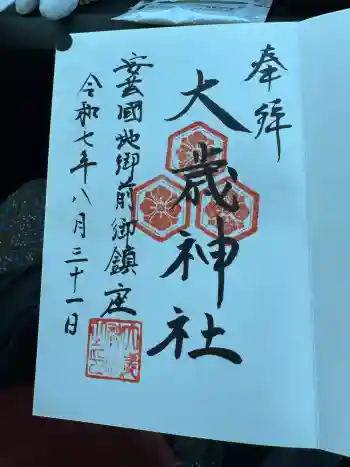 奉拝
大歳神社
安芸國地御前御鎮座
令和七年八月三十一日